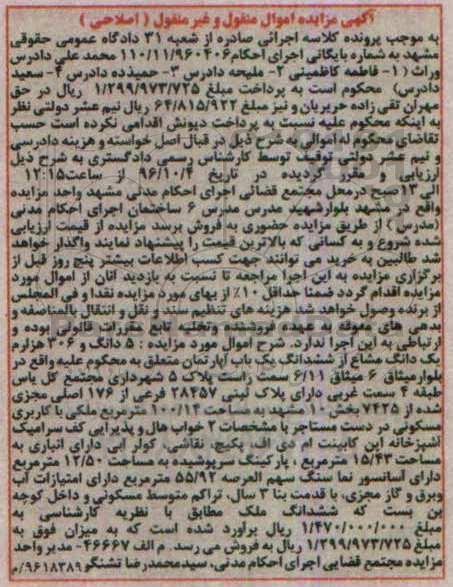 آگهی مزایده اموال منقول و غیر منقول ( اصلاحی )
به موجب پرونده کلاسه اجرائی صادره از شعبه ۳۱ دادگاه عمومی حقوقی
مشهد به شماره بایگانی اجرای احکام ۱۱۰/۱۱/۹۶۰۴۰۶ محمد علی دادرس
وراث ( ۱- فاطمه کاظمینی ۲- ملیحه دادرس ۳- حمیدده دادرس ۴- سعید
دادرس) محکوم است به پرداخت مبلغ ۱/۲۹۹/۹۷۳/۷۲۵ ریال در حق
مهران تقی زاده حریریان و نیز مبلغ ۶۴/۸۱۵/۹۲۲ ریال نیم عشر دولتی نظر
به اینکه محکوم علیه نسبت به پرداخت دیونش اقدامی نکرده است حسب
تقاضای محکوم له اموالی به شرح ذیل در قبال اصل خواسته و هزینه دادرسی
و نیم عشر دولتی توقیف توسط کارشناس رسمی دادگستری به شرح ذیل
ارزیابی و مقرر گردیده در تاریخ ۹۶/۱۰/۴ از ساعت ۱۲:۱۵
الی ۱۳صبح درمحل مجتمع قضائی اجرای احکام مدنی مشهد واحد مزایده
واقع در مشهد بلوارشهید مدرس مدرس ۶ ساختمان اجرای احکام مدنی
(مدرس ) از طریق مزایده حضوری به فروش برسد مزایده از قیمت ارزیابی
شده شروع و به کسانی که بالاترین قیمت را پیشنهاد نمایند واگذار خواهد
شد طالبین به خرید می توانند جهت کسب اطلاعات بیشتر پنج روز قبل از
برگزاری مزایده به این اجرا مراجعه تا نسبت به بازدید آنان از اموال مورد
مزایده اقدام گردد ضمنا حداقل ۱۰٪ از بهای مورد مزایده نقدا و فی المجلس
از برنده وصول خواهد شد هزینه های تنظیم سند و نقل و انتقال بالمناصفه و
بدهی های معوقه به عهده فروشنده وتخلیه تابع مقررات قانونی بوده و
ارتباطی به این اجرا ندارد. شرح اموال مورد مزایده : ۵ دانگ و ۳۰۶ هزارم
یک دانگ مشاع از ششدانگ یک باب آپارتمان متعلق به محکوم علیه واقع در
بلوارمیثاق ۶ میثاق ۶/۱۱ سمت راست پلاک ۵ شهرداری مجتمع کل یاس
طبقه ۴ سمت غربی دارای پلاک ثبتی ۲۸۴۵۷ فرعی از ۱۷۶ اصلی مجزی
شده از ۷۴۲۵ بخش ۱۰ مشهد به مساحت ۱۰۰/۱۴ مترمربع ملکی با کاربری
مسکونی در دست مستاجر با مشخصات ۲ خواب هال و پذیرایی کف سرامیک
آشپزخانه اپن کابینت ام دی اف، پکیج، نقاشی، کولر آبی دارای انباری به
مساحت ۱۵/۴۳ مترمربع ، پارکینگ سرپوشیده به مساحت ۱۲/۵۰ مترمربع
دارای آسانسور نما سنگ سهم العرصه ۵۵/۹۲ مترمربع دارای امتیازات آب
وبرق و گاز مجزی، با قدمت بنا ۳ سال، تراکم متوسط مسکونی و داخل کوچه
بن بست که ششدانگ ملک مطابق با نظریه کارشناسی به
مبلغ ۱/۴۷۰/۰۰۰/۰۰۰ ریال برآورد شده است که به میزان فوق به
مبلغ ۱/۲۹۹/۹۷۳/۷۲۵ ریال به فروش می رسد. م الف ۴۶۶۶۷- مدیر واحد
مزایده مجتمع قضایی اجرای احکام مدنی، سیدمحمدرضا تشنگو ۹۶۱۸۳۸۹/م